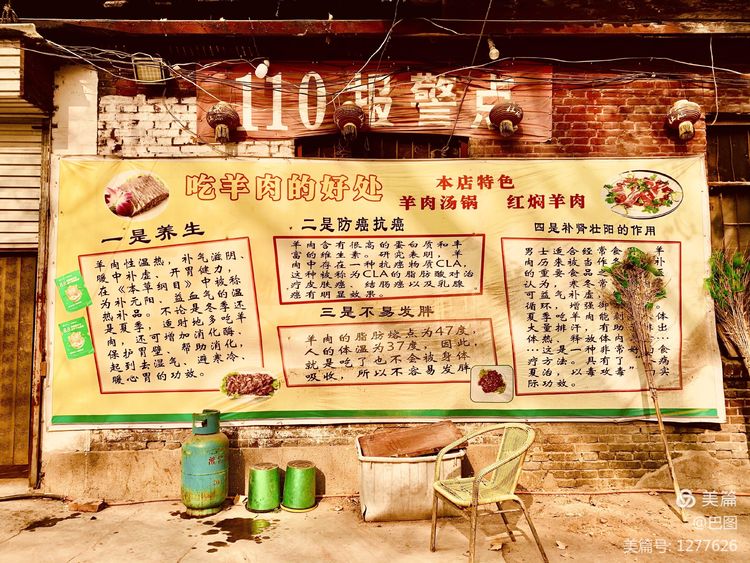 110报警点
吃羊肉的好处
本店特色
羊肉汤锅 红焖羊肉
一是养生
羊肉性温热，补气滋阴、
暖中补虚、开胃健力，
在《本草纲目》中被称
为补元阳、益血气的温
热补品。不论是冬季还
是夏季，适时地多吃羊
肉，还可增加消化酶，
保护胃壁、帮助消化，
起到去湿气、避寒冷、
暖心胃的功效。
二是防癌抗癌
羊肉含有很高的蛋白质和丰
富的维生素。研究表明，羊
肉中存在一种抗癌物质CLA，
这种被称为CLA的脂肪酸对治
疗皮肤癌、结肠癌以及乳腺
癌有明显效果。
三是不易发胖
羊肉的脂肪熔点为47度，
人的体温为37度，因此，
就是吃了也不会被身体
吸收，所以不容易发胖
四是补肾壮阳的作用
男士适合经常食
肉历来被当作
的重要食品
认为，寒冬
可益气补虚
循环，增强御
夏季吃羊能
大量排汗
体热
...这是一种非常
方法，具有了
夏治，以毒攻毒”
际功效。
美篇
@巴图
美篇号: 1277626